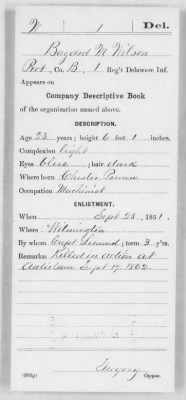 W 1 Del.
Bayard M Wilson
Pvt, Co. B, 1 Reg't Delaware Inf.
Appears on
Company Descriptive Book
of the organization named above.
DESCRIPTION.
Age 23 years; height 6 feet 1 inches.
Complexion light
Eyes blue; hair dark
Where born Chester, Penna
Occupation Machinist
ENLISTMENT.
When Sept 23, 1861.
Where Wilmington
By whom Capt ; term 3 y'rs.
Remarks: Killed in action at
Antietam Sept 17, 1862.
Gregory
Copyist.